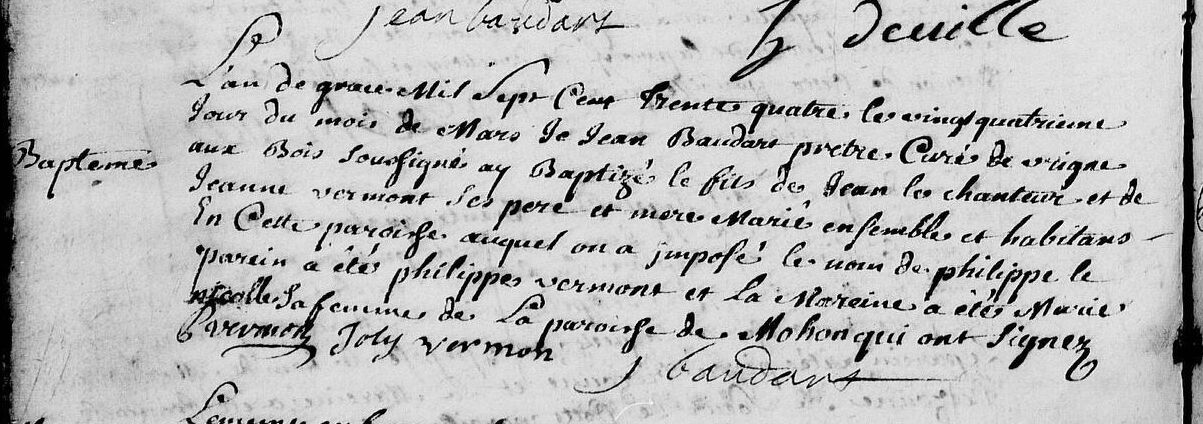 jean baudart
deuille
L'an de grace Mil Sept Cent Trente quatre le vingt quatrieme
Jour du mois de Mars Je Jean Baudart pretre Curé de vrigne
Bapteme
aux Bois Soussigné ay Baptizé le fils de Jean le chanteur et de
Jeanne vermont Ses pere et mere Marié ensemble et habitans
En Cette paroisse auquel on a jmposé le nom de philippe le
parein a été philippe vermont et la Mareine a été Marie
nicolle Sa femme de La paroisse de Mohon qui ont Signez
P vermon Joly vermon
J baudart